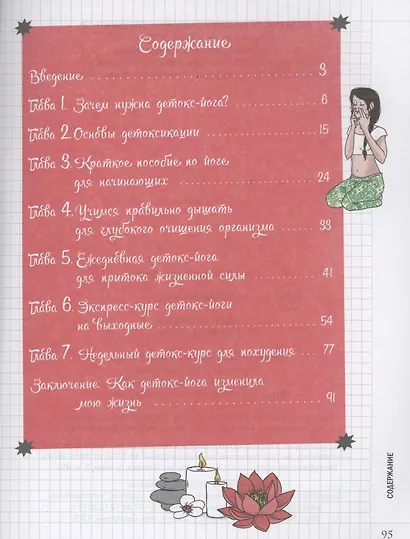 Содержание
Введение ........................ 3
Глава 1. Зачем нужна детокс-йога? ........ 6
Глава 2. Основы детоксикации ........ 15
Глава 3. Краткое пособие по йоге
для начинающих ........ 24
Глава 4. Учимся правильно дышать
для глубокого очищения организма .... 33
Глава 5. Ежедневная детокс-йога
для притока жизненной силы ........ 41
Глава 6. Экспресс-курс детокс-йоги
на выходные ........ 54
Глава 7. Недельный детокс-курс для похудения .... 77
Заключение. Как детокс-йога изменила
мою жизнь ........ 91
СОДЕРЖАНИЕ
95